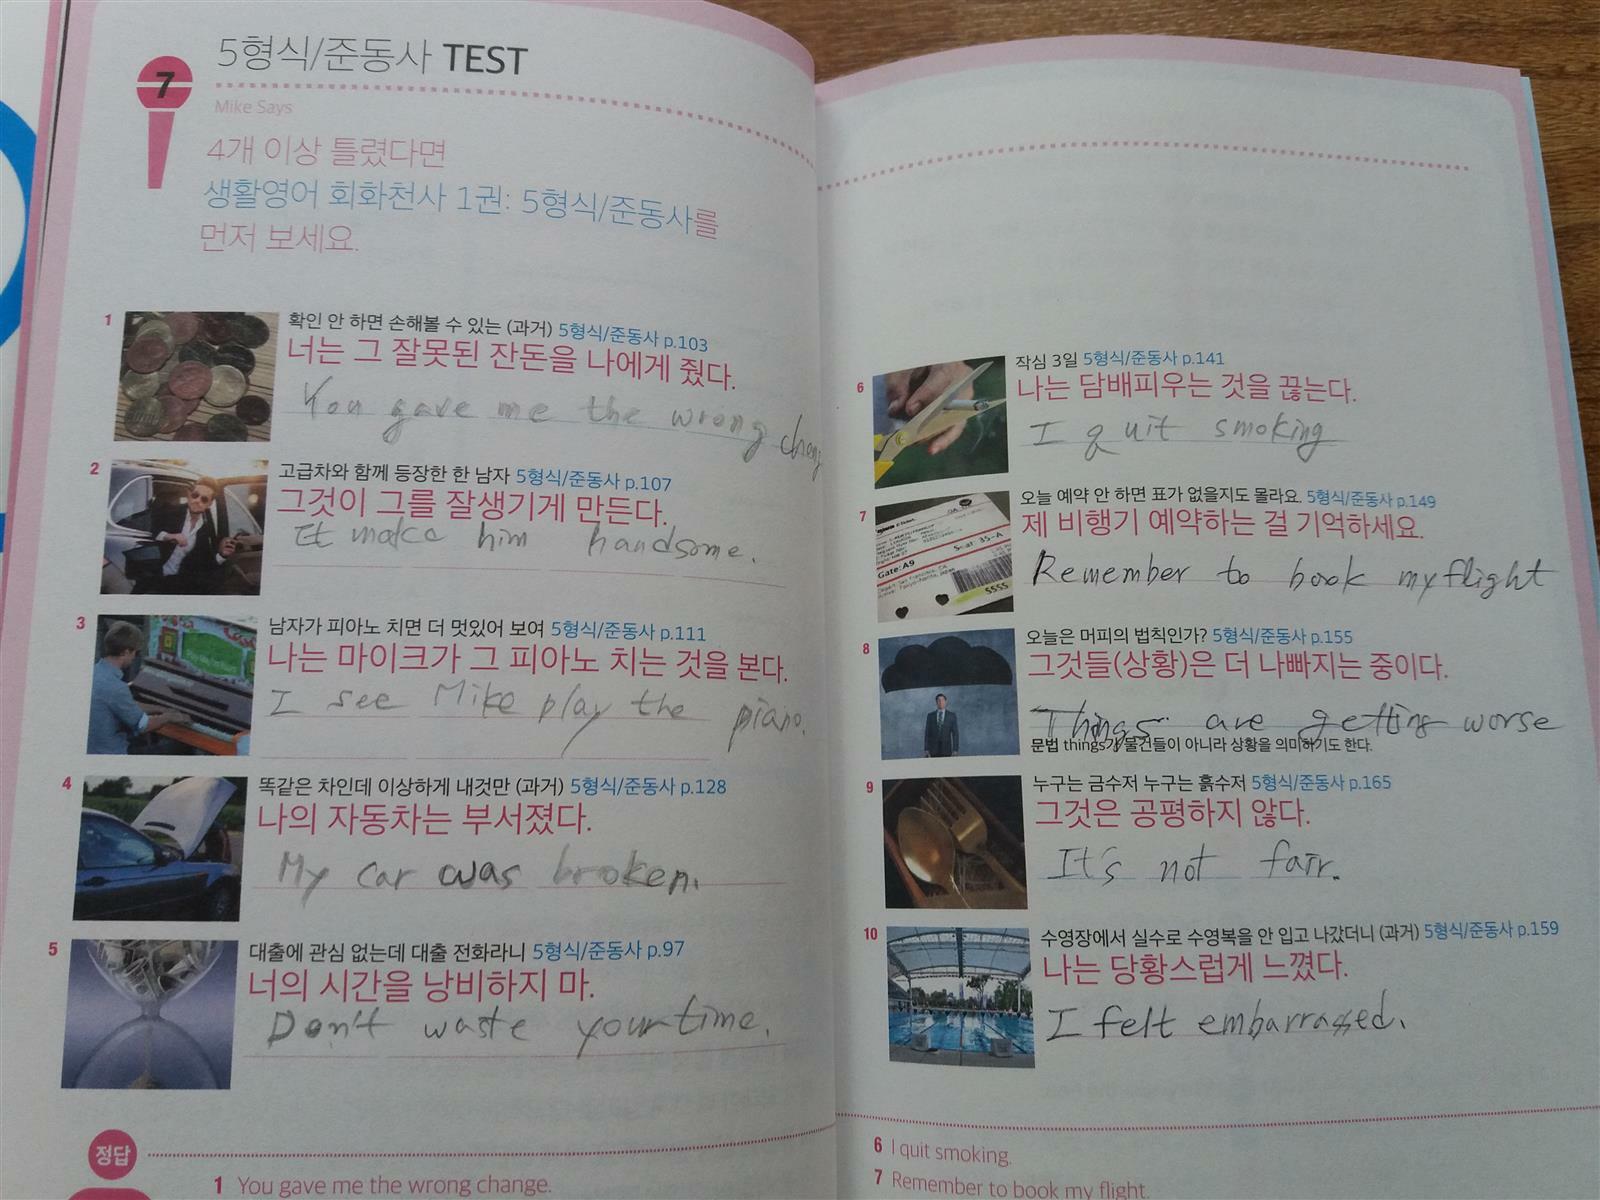 7
5형식/준동사 TEST
Mike Says
4개 이상 틀렸다면
생활영어 회화천사 1권: 5형식/준동사를
먼저 보세요.
1 확인 안 하면 손해볼 수 있는 (과거) 5형식/준동사 p.103
너는 그 잘못된 잔돈을 나에게 줬다.
You gave me the wrong
2 고급차와 함께 등장한 한 남자 5형식/준동사 p.107
그것이 그를 잘생기게 만든다.
It make him handsome.
3 남자가 피아노 치면 더 멋있어 보여 5형식/준동사 p.111
나는 마이크가 그 피아노 치는 것을 본다.
I see Mike play the piano.
4 똑같은 차인데 이상하게 내것만 (과거) 5형식/준동사 p.128
나의 자동차는 부서졌다.
My car was broken.
5 대출에 관심 없는데 대출 전화라니 5형식/준동사 p.97
너의 시간을 낭비하지 마.
Don't waste your time.
정답
1 You gave me the wrong change.
6 작심 3일 5형식/준동사 p.141
나는 담배피우는 것을 끊는다.
I quit smoking
7 오늘 예약 안 하면 표가 없을지도 몰라요. 5형식/준동사 p.149
제 비행기 예약하는 걸 기억하세요.
Gate: A9
Seat: 35-A
SSSS
Remember to book my flight
8 오늘은 머피의 법칙인가? 5형식/준동사 p.155
그것들(상황)은 더 나빠지는 중이다.
Things are getting worse
문법 things가 물건들이 아니라 상황을 의미하기도 한다.
9 누구는 금수저 누구는 흙수저 5형식/준동사 p.165
그것은 공평하지 않다.
It's not fair.
10 수영장에서 실수로 수영복을 안 입고 나갔더니 (과거) 5형식/준동사 p.159
나는 당황스럽게 느꼈다.
I felt embarrassed.
6 I quit smoking.
7 Remember to book my flight.